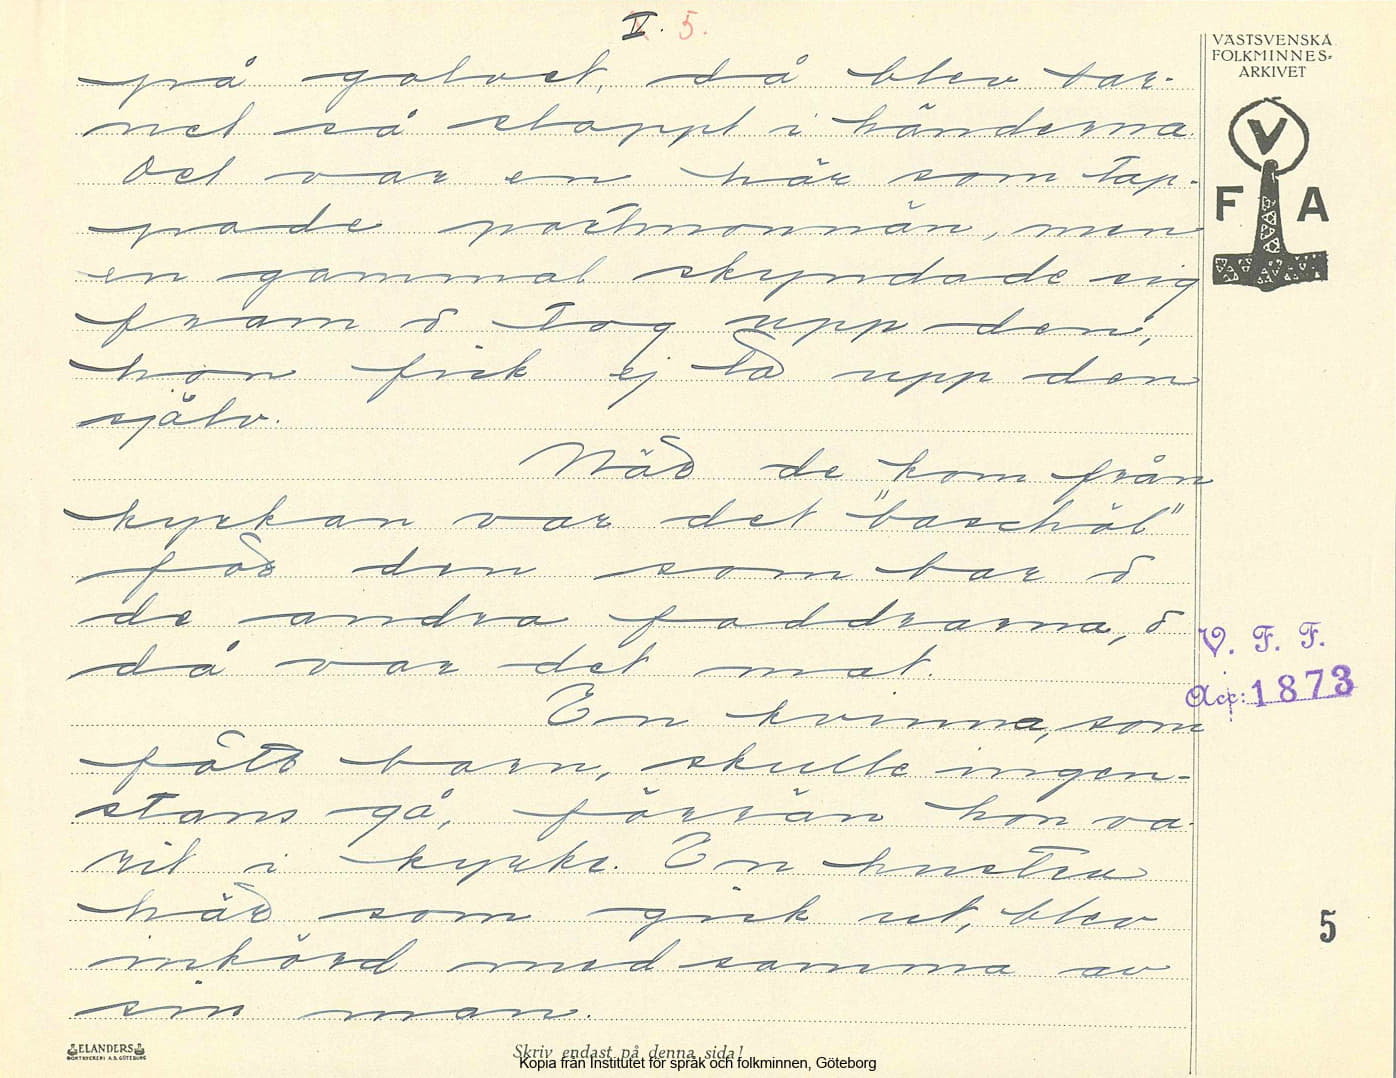 V. 5.
VÄSTSVENSKA
FOLKMINNES-
ARKIVET
V
F A
på golvet, då blev bar-
net så slappt i händerna.
Det var en här som tap-
pade portmonnän, men
en gammal skyndade sig
fram ö tog upp den,
hon fick ej ta upp den
själv.
När de kom från
kyrkan var det "barschöl"
för den som bar ö
de andra faddrarna, ö
då var det mat.
En kvinna, som
fått barn, skulle ingen-
stans gå, förrän hon va-
rit i kyrke. En hustru
här som gick ut, blev
inkörd med samma av
sin man.
V. F. F.
Acc: 1873
5
ELANDERS
BOKTRYCKERI A.B. GÖTEBORG
Skriv endast på denna sida!
Kopia från Institutet för språk och folkminnen, Göteborg